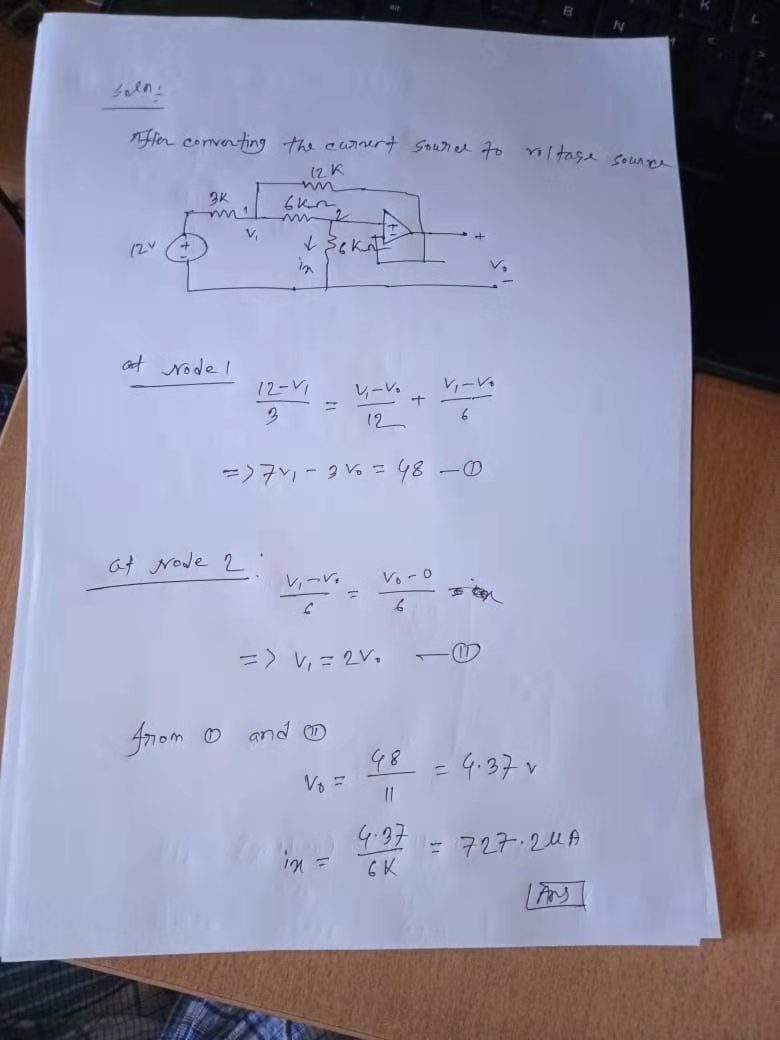 Soln:
After converting the current source to voltage source
12K
3K
6KΩ
2
1
V₁
12V
+
-
↓
ix
6KΩ
+
V₀
-
at Node 1
(12-V₁)/3 = (V₁-V₀)/12 + (V₁-V₀)/6
=> 7V₁ - 3V₀ = 48 — ①
at Node 2 :
(V₁-V₀)/6 = (V₀-0)/6
=> V₁ = 2V₀ — ⑪
from ① and ⑪
V₀ = 48/11 = 4.37 V
ix = 4.37/6K = 727.2 μA
Ans
B
N
K
L